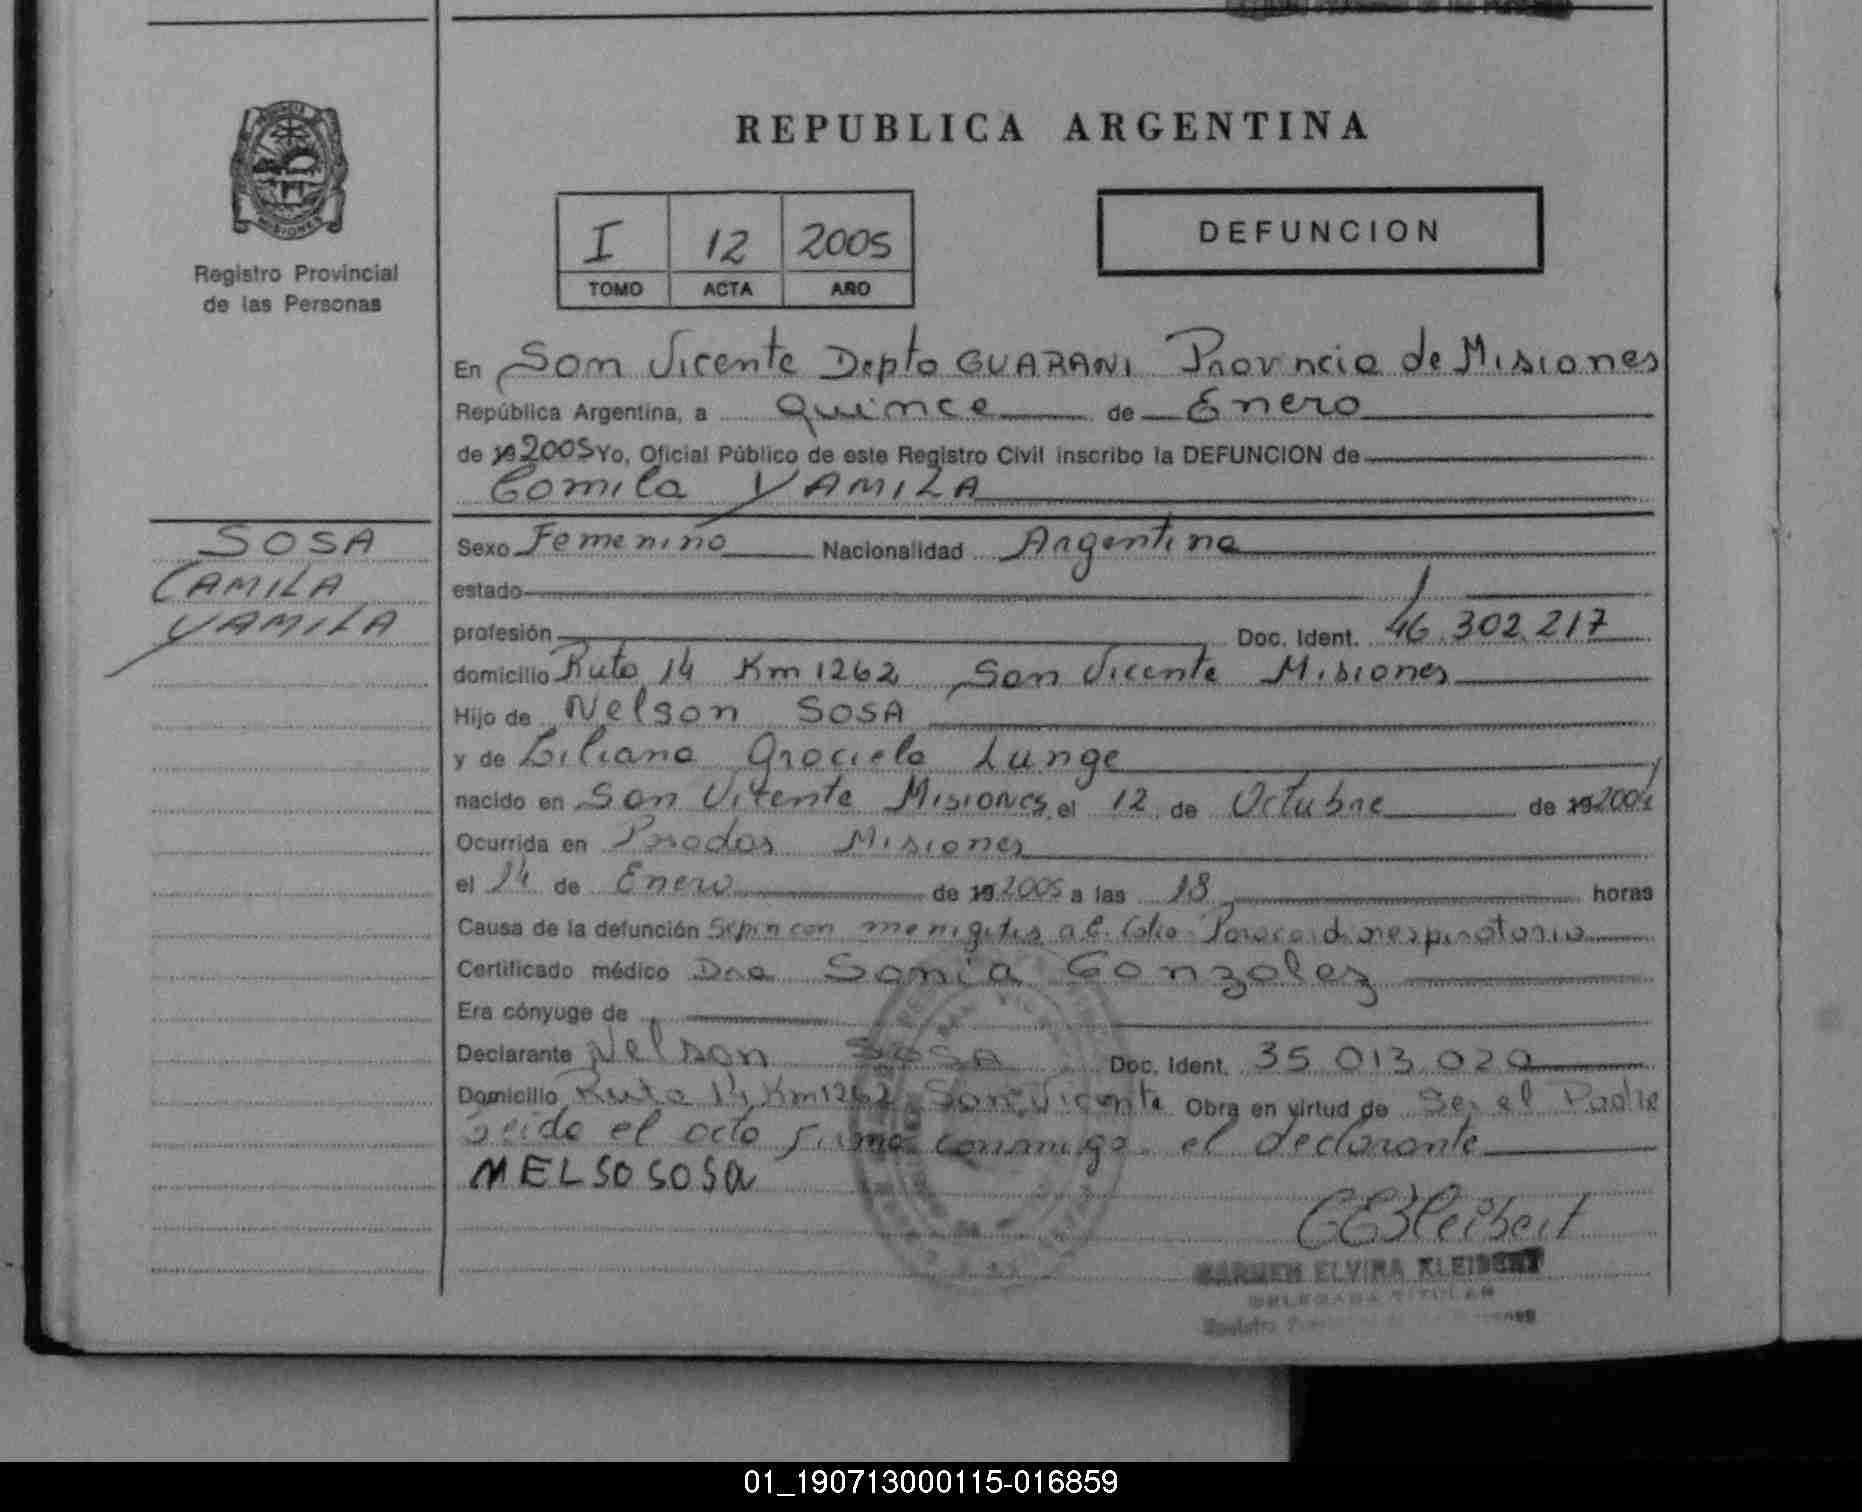 REPUBLICA ARGENTINA
MISIONES
Registro Provincial
de las Personas
I 12 2005
TOMO ACTA AÑO
DEFUNCION
En San Vicente Depto GUARANI Provincia de Misiones
República Argentina, a quince de Enero
de 19 2005 Yo, Oficial Público de este Registro Civil inscribo la DEFUNCION de
Camila YAMILA
SOSA
CAMILA
YAMILA
Sexo Femenino Nacionalidad Argentina
estado
profesión Doc. Ident. 46.302.217
domicilio Ruta 14 Km 1262 San Vicente Misiones
Hijo de Nelson SOSA
y de Liliana Graciela Lunge
nacido en San Vicente Misiones, el 12 de Octubre de 19 2004
Ocurrida en Posadas Misiones
el 14 de Enero de 19 2005 a las 18 horas
Causa de la defunción con menigitis Paro cardiorespiratorio
Certificado médico Dra Sonia Gonzalez
Era cónyuge de
Declarante Nelson SOSA Doc. Ident. 35.013.020
Domicilio Ruta 14 Km 1262 San Vicente Obra en virtud de Ser el Padre
Leida el acta firma conmigo el declarante
NELSO SOSA
CEKleibert
CARMEN ELVIRA KLEIBERT
DELEGADA TITULAR
01_190713000115-016859